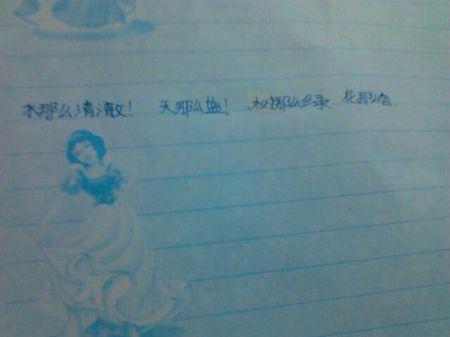 水那么清澈! 天那么蓝! 树那么绿 花那么香.